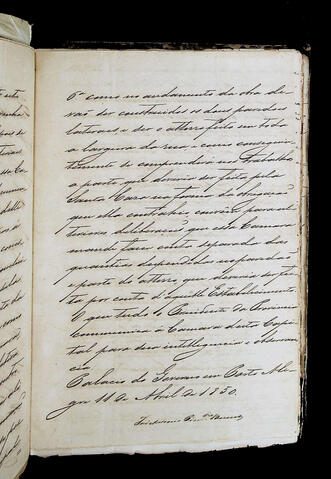 e como no andamento da obra de-
vão ser construidos os dous paredões
lateraes e ser o aterro feito em toda
a largura da rua e como conseguin-
temente se comprehenda nos trabalhos
a parte que deveria ser feita pela
Santa Casa na forma da obrigação
que ella contrahio, convém para ul-
teriores deliberações que essa Camara
mande fazer conta separada das
quantias despendidas no paredão e
parte do aterro, que deveria ser fei-
ta por conta d'aquelle Estabelecimento
O que tudo o Presidente da Provincia
communica á Camara desta Capi-
tal para sua intelligencia e observan-
cia
Palacio do Governo em Porto Ale-
gre 11 de Abril de 1850.